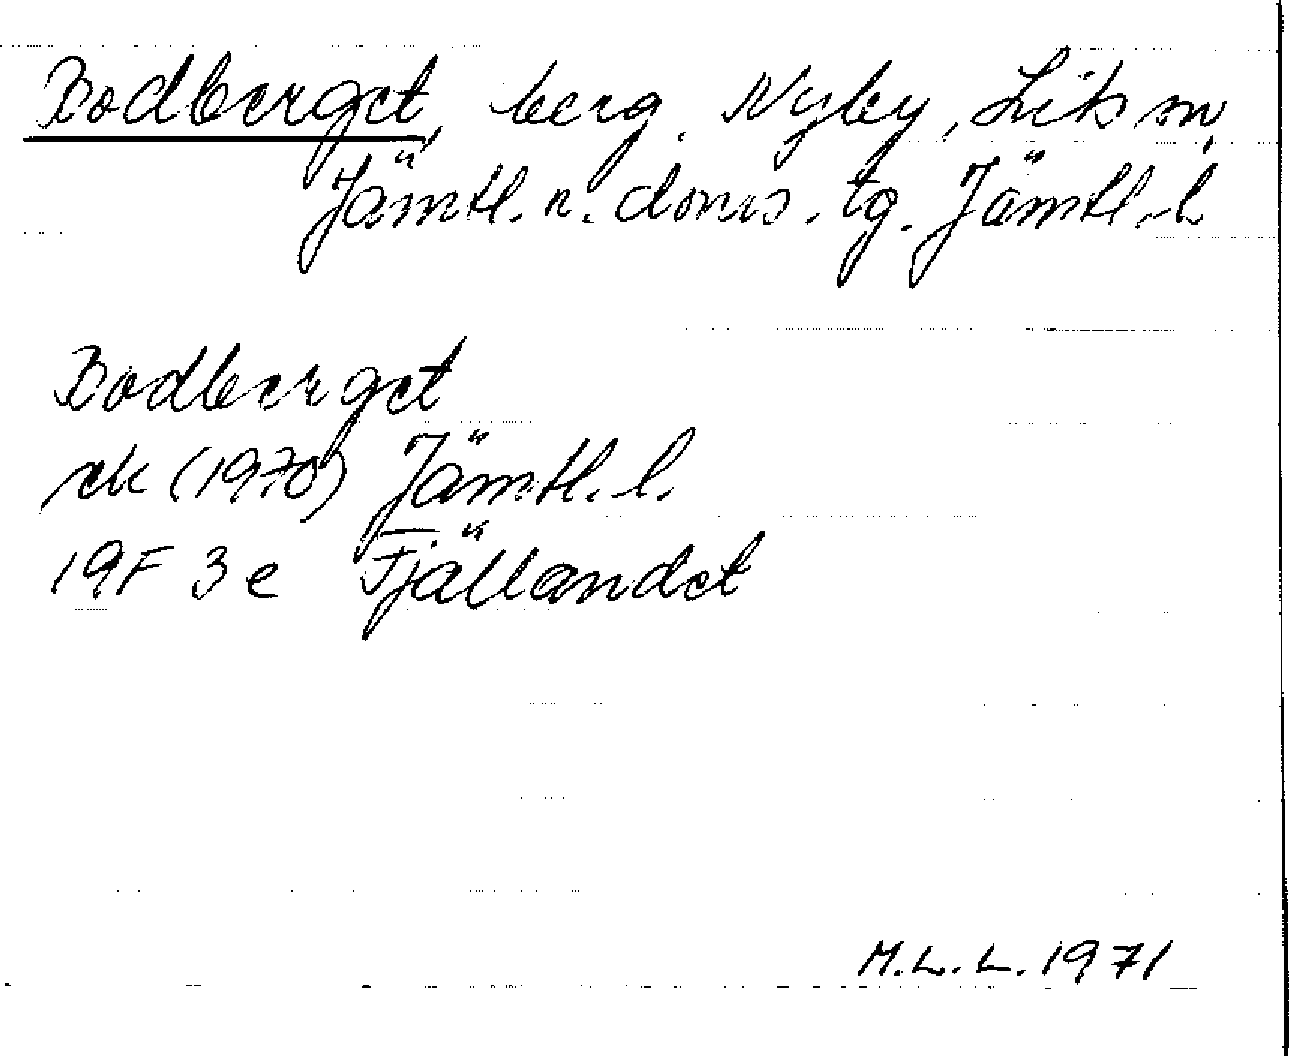 Bodberget, berg. Nyby, Lits sn,
Jämtl. n. doms. tg. Jämtl. l.
Bodberget
ek (1970) Jämtl. l.
19F 3e Fjällandet
M.L.L. 1971